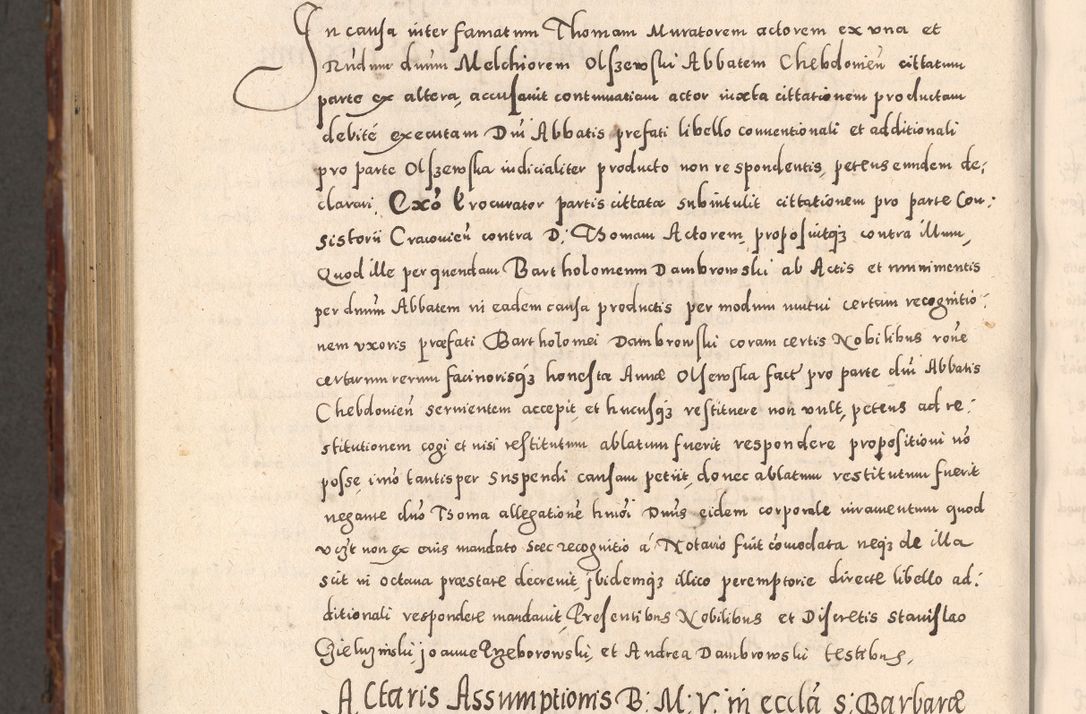 In causa inter famatum Thomam Muratorem actorem ex una et
Rndum dnum Melchiorem Olszewski Abbatem Chebdovien̄ cittatum
parte ex altera, accusavit contumatiam actor iuxta cittationem productam
debité executam Dni Abbatis prefati libello conventionali et additionali
pro parte Olszewska iudicialiter producto non respondentis, petens eundem de:
clarari. Exō Procurator partis cittatæ subintulit cittationem pro parte Con:
sistorii Cracovien̄ contra D: Thomam Actorem, proposuitq3 contra illum,
Quod ille per quendam Bartholomeum Dambrowski ab Actis et munimentis
per dnum Abbatem in eadem causa productis per modum mutui certam recognitio:
nem uxoris præfati Bartholomei Dambrowski coram certis Nobilibus rōne
certarum rerum facinorisq3 honesta Annæ Olsewska fact pro parte dni Abbatis
Chebdovien̄ servientem accepit, et hucusq3 restituere non vult, petens ad re:
stitutionem cogi et nisi restitutum ablatum fuerit respondere propositioni nō
posse, imō tantisper suspendi causam petiit, donec ablatum restitutum fuerit
negante dno Thoma allegationē hmōi Dnūs eidem corporale iuramentum quod
vczt non ex eius mandato haec recognitio á Notario fuit cōmodata neq3 de illa
scit in octava præstare decrevit, ibidemq3 illico peremptorie directe libello ad:
ditionali respondere mandavit, Presentibus Nobilibus et Discretis Stanislao
Gieluzinski, joanne Rzeborowski, et Andrea Dambrowski testibus,
A Ctaris Assumptionis B: M: V: in ecclā S: Barbaræ